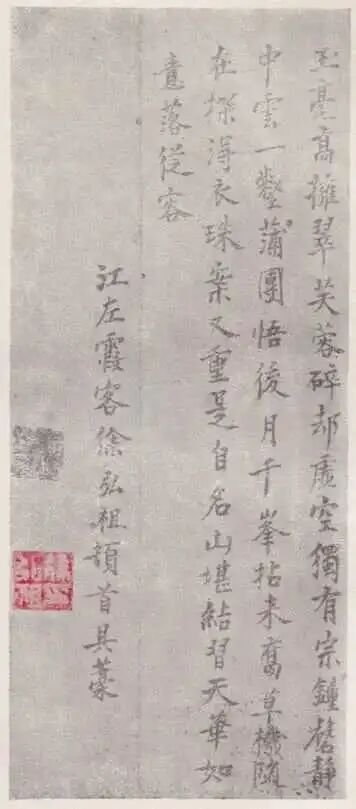 玉毫高擁翠芙蓉碎却虛空獨有宗鐘磬靜
中雲一壑蒲團悟後月千峯拈来腐草機隨
在探淂衣珠案又重是自名山堪結習天華如
意落從容
江左霞客徐弘祖頓首具藁